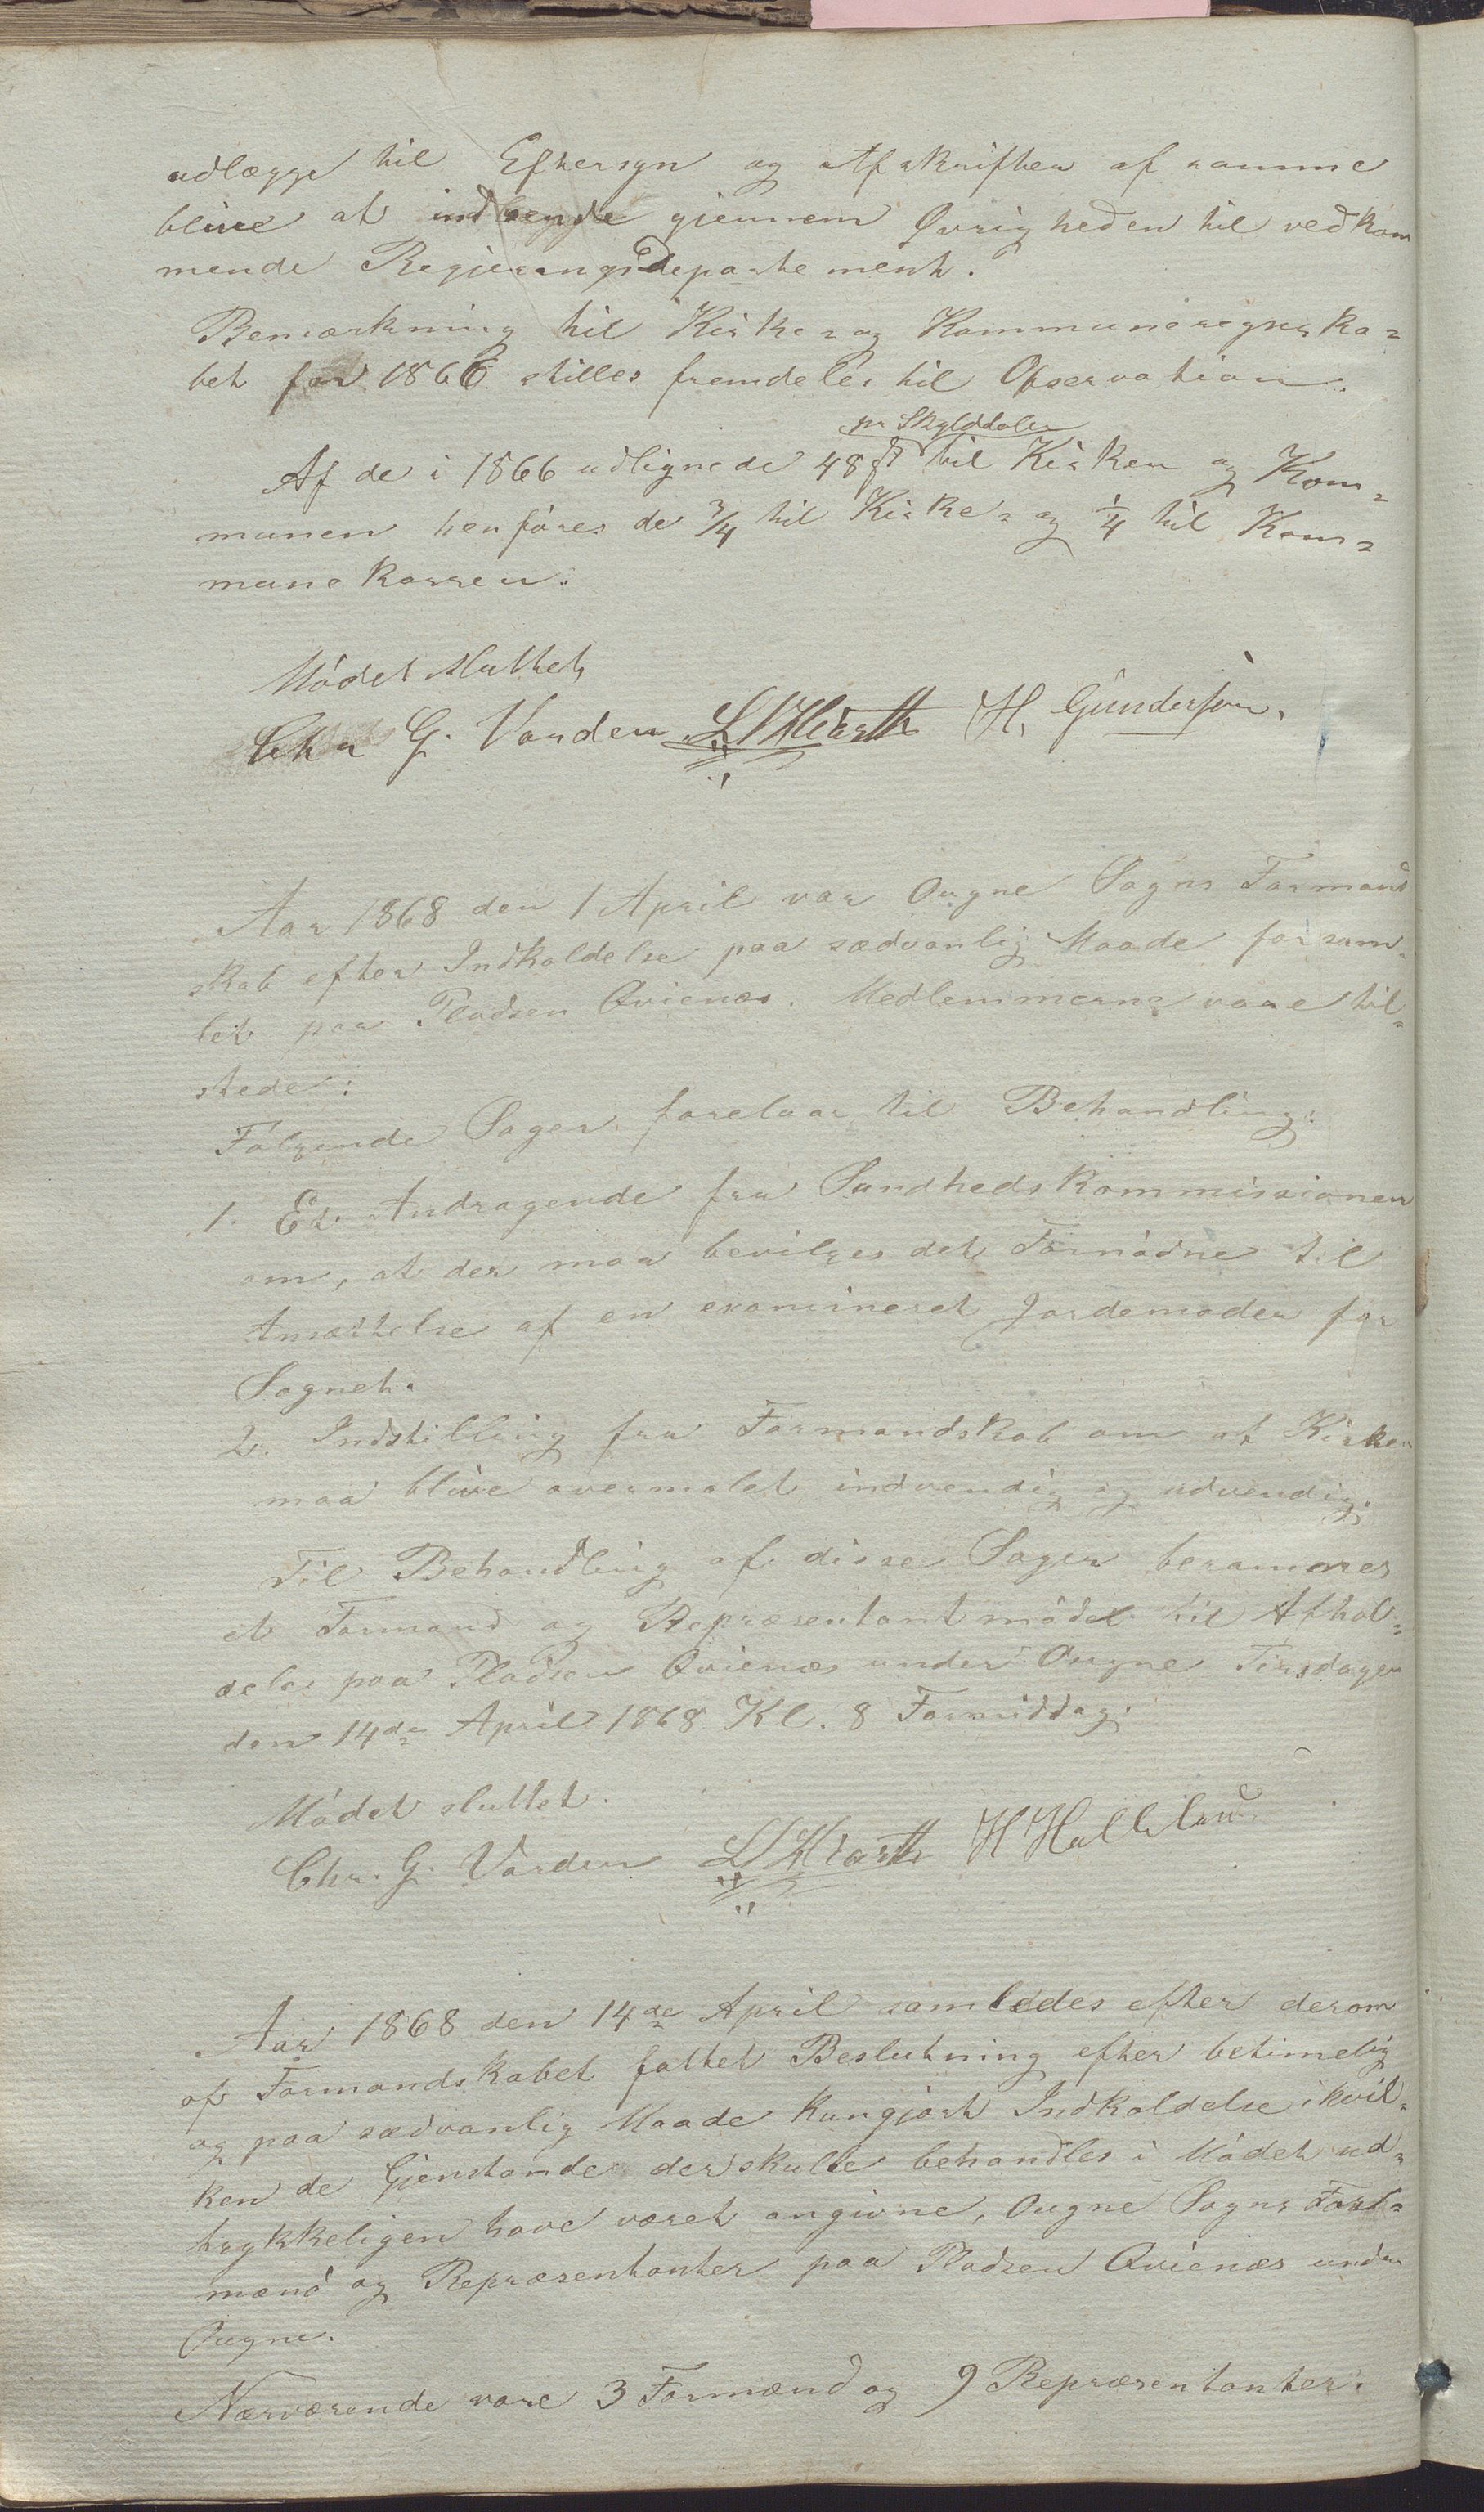 udlægge til Eftersyn og Afskrifter af samme
blive at indsende gjennem Øvrigheden til vedkom
mende Regjeringsdepartement.
Bemærkning til Kirke- og Kommuneregnska-
bet for 1866 stilles fremdeles til Observation.
pr Skylddaler
Af de i 1866 udlignede 48 ß til Kirken og Kom-
munen henføres de 3/4 til Kirke- og 1/4 til Kom-
munekassen.
Mødet sluttet
Chr G. Varden H. Gundersen.
Aar 1868 den 1 April var Ougne Sogns Formand
skab efter Indkaldelse paa sædvanlig Maade forsam-
let paa Pladsen Qvienæs. Medlemmerne vare til-
stede:
Følgende Sager forelaa til Behandling:
1. Et Andragende fra Sundhedskommissionen
om, at der maa bevilges det Fornødne til
Ansættelse af en examineret Jordemoder for
Sognet.
2. Indstilling fra Formandskab om at Kirken
maa blive overmalet indvendig og udvendig.
Til Behandling af disse Sager berammes
et Formand og Repræsentantmøde til Afhol-
delse paa Pladsen Qvienæs under Ougne Tirsdagen
den 14de April 1868 Kl. 8 Formiddag.
Mødet sluttet.
Chr. G. Varden
Aar 1868 den 14de April samledes efter derom
af Formandskabet fattet Beslutning efter betimelig
og paa sædvanlig Maade kungjort Indkaldelse i hvil-
ken de Gjenstande der skulle behandles i Mødet ud-
trykkeligen have været angivne, Ougne Sogns For-
mænd og Repræsentanter paa Pladsen Qvienæs under
Ougne.
Nærværende vare 3 Formænd og 9 Repræsentanter.